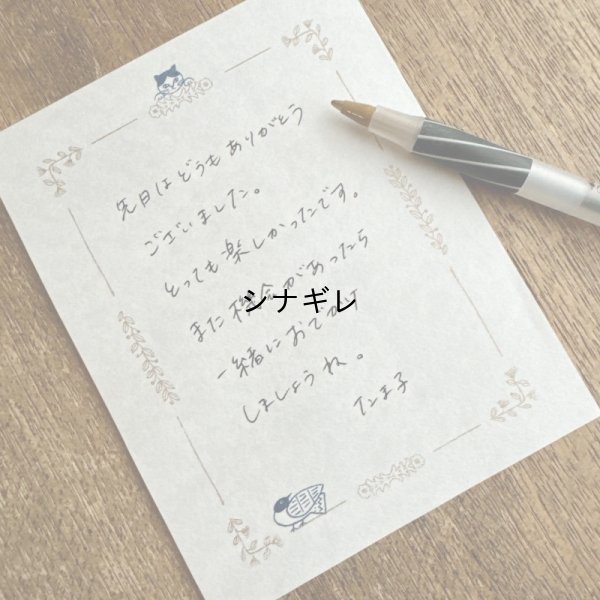 先日はどうもありがとう
ございました。
とっても楽しかったです。
また機会があったら
一緒におでかけ
しましょうね。
たま子
シナギレ